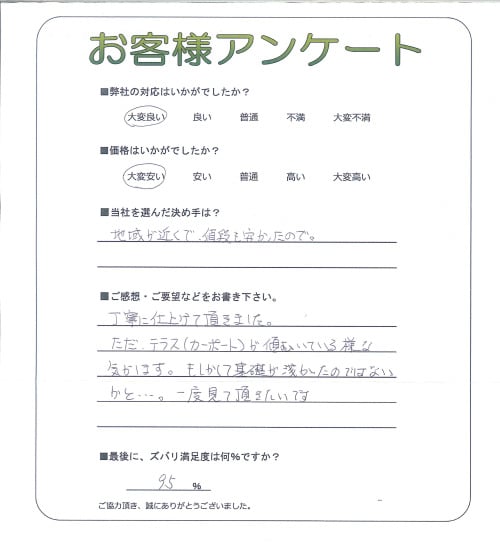 お客様アンケート
■弊社の対応はいかがでしたか？
大変良い 良い 普通 不満 大変不満
■価格はいかがでしたか？
大変安い 安い 普通 高い 大変高い
■当社を選んだ決め手は？
地域が近くで、値段も安かったので。
■ご感想・ご要望などをお書き下さい。
丁寧に仕上げて頂きました。
ただ、テラス(カーポート)が傾いている様な
気がします。もしかして基礎が浅かったのではない
かと…。一度見て頂きたいです
■最後に、ズバリ満足度は何％ですか？
95 ％
ご協力頂き、誠にありがとうございました。